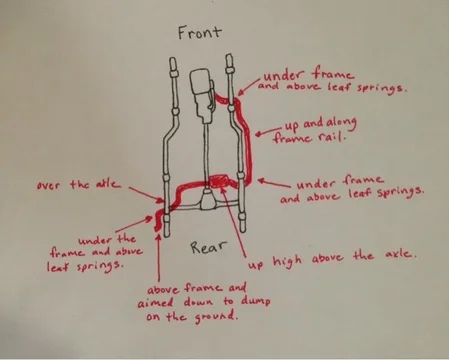 Front
under frame
and above leaf springs.
up and along
frame rail.
over the axle
under frame
and above leaf springs.
under the
frame and above
leaf springs.
Rear
up high above the axle.
above frame and
aimed down to dump
on the ground.